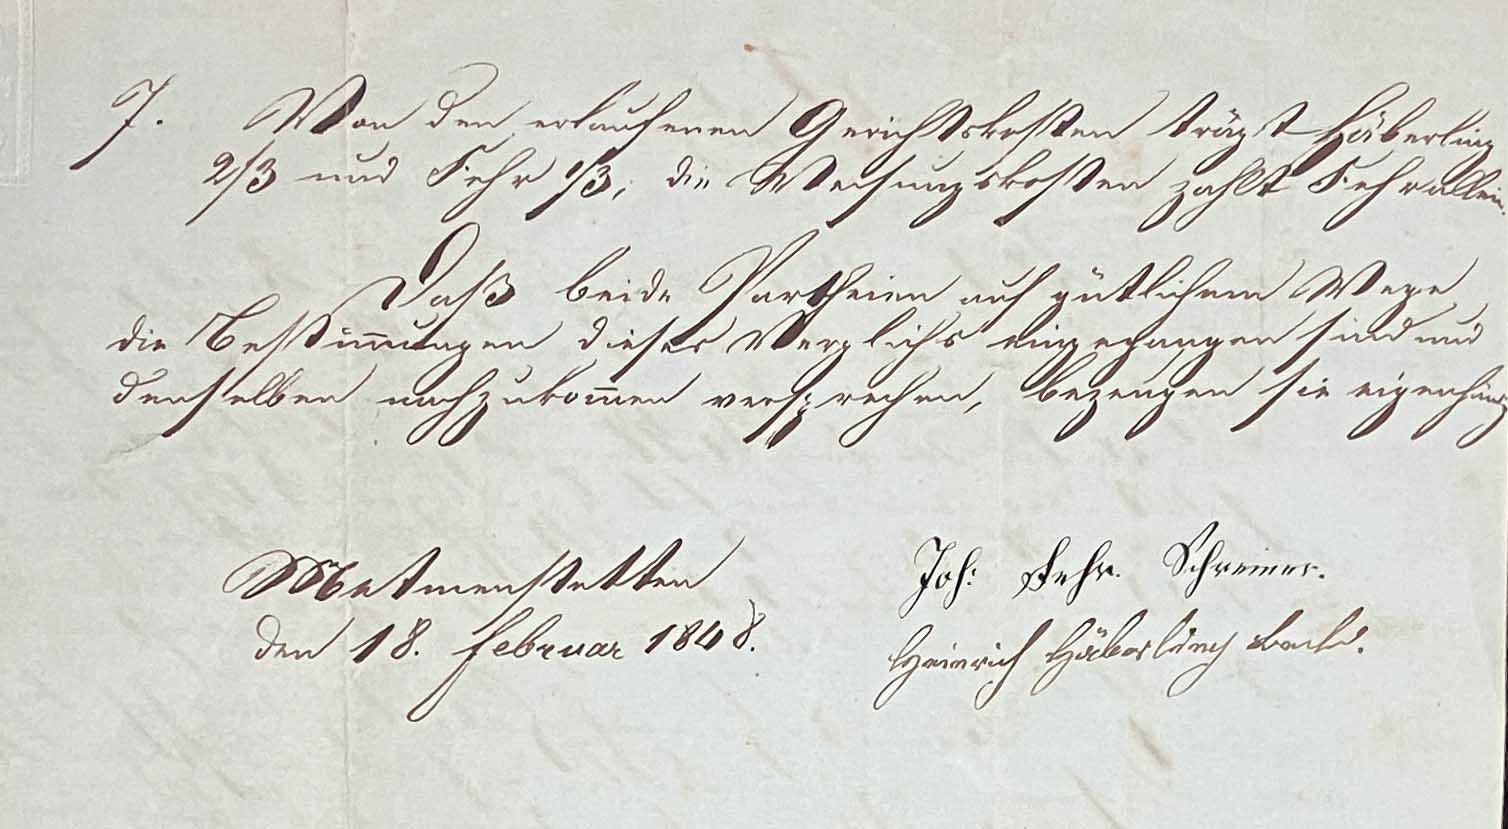 7. Von den erlaufenen Gerichtskosten trägt Häberling
2/3 und Fehr 1/3; die Weisungskosten zahlt Fehr allein.
Daß beide Partheien auf gütlichem Wege
die Bestim̅ungen dieses Verglichs eingegangen sind und
denselben nachzukom̅en versprechen, bezeugen sie eigenhändig
Metmenstetten
den 18. Februar 1848.
Joh: Fehr. Schreiner.
Heinrich Häberling